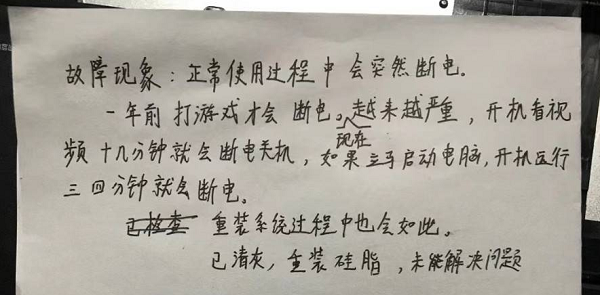 故障现象：正常使用过程中会突然断电。
一年前打游戏才会断电。现在越来越严重，开机看视
频十几分钟就会断电关机，如果立马启动电脑，开机运行
三四分钟就会断电。
已检查 重装系统过程中也会如此。
已清灰，重装硅脂，未能解决问题